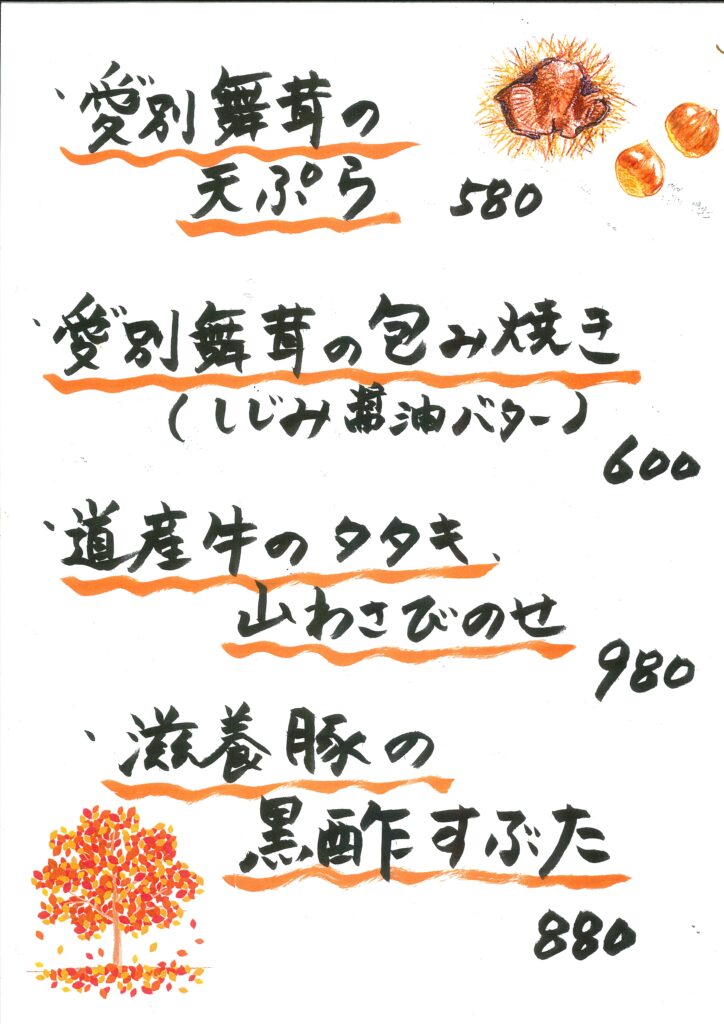 、愛別舞茸の
天ぷら 580
、愛別舞茸の包み焼き
(しじみ醤油バター)
600
、道産牛のタタキ、
山わさびのせ
980
、滋養豚の
黒酢すぶた
880